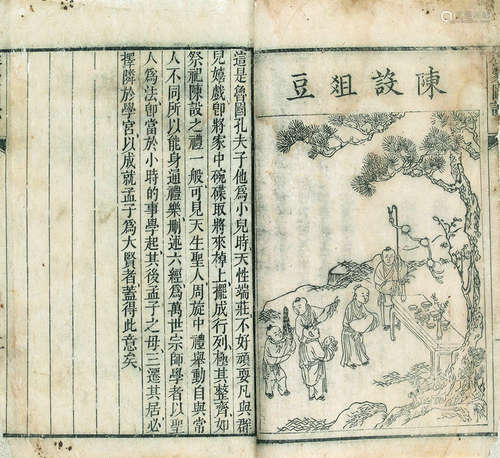 陳設俎豆
這是魯國孔夫子他為小兒時天性端莊不好頑耍凡與群
兒嬉戲卽將家中碗碟取將來棹上擺成行列極其整齊如
祭祀陳設之禮一般可見天生聖人周旋中禮舉動自與常
人不同所以能身通禮樂刪述六經為萬世宗師學者以聖
人為法卽當於小時的事學起其後孟子之母三遷其居必
擇隣於學宮以成就孟子為大賢者蓋得此意矣